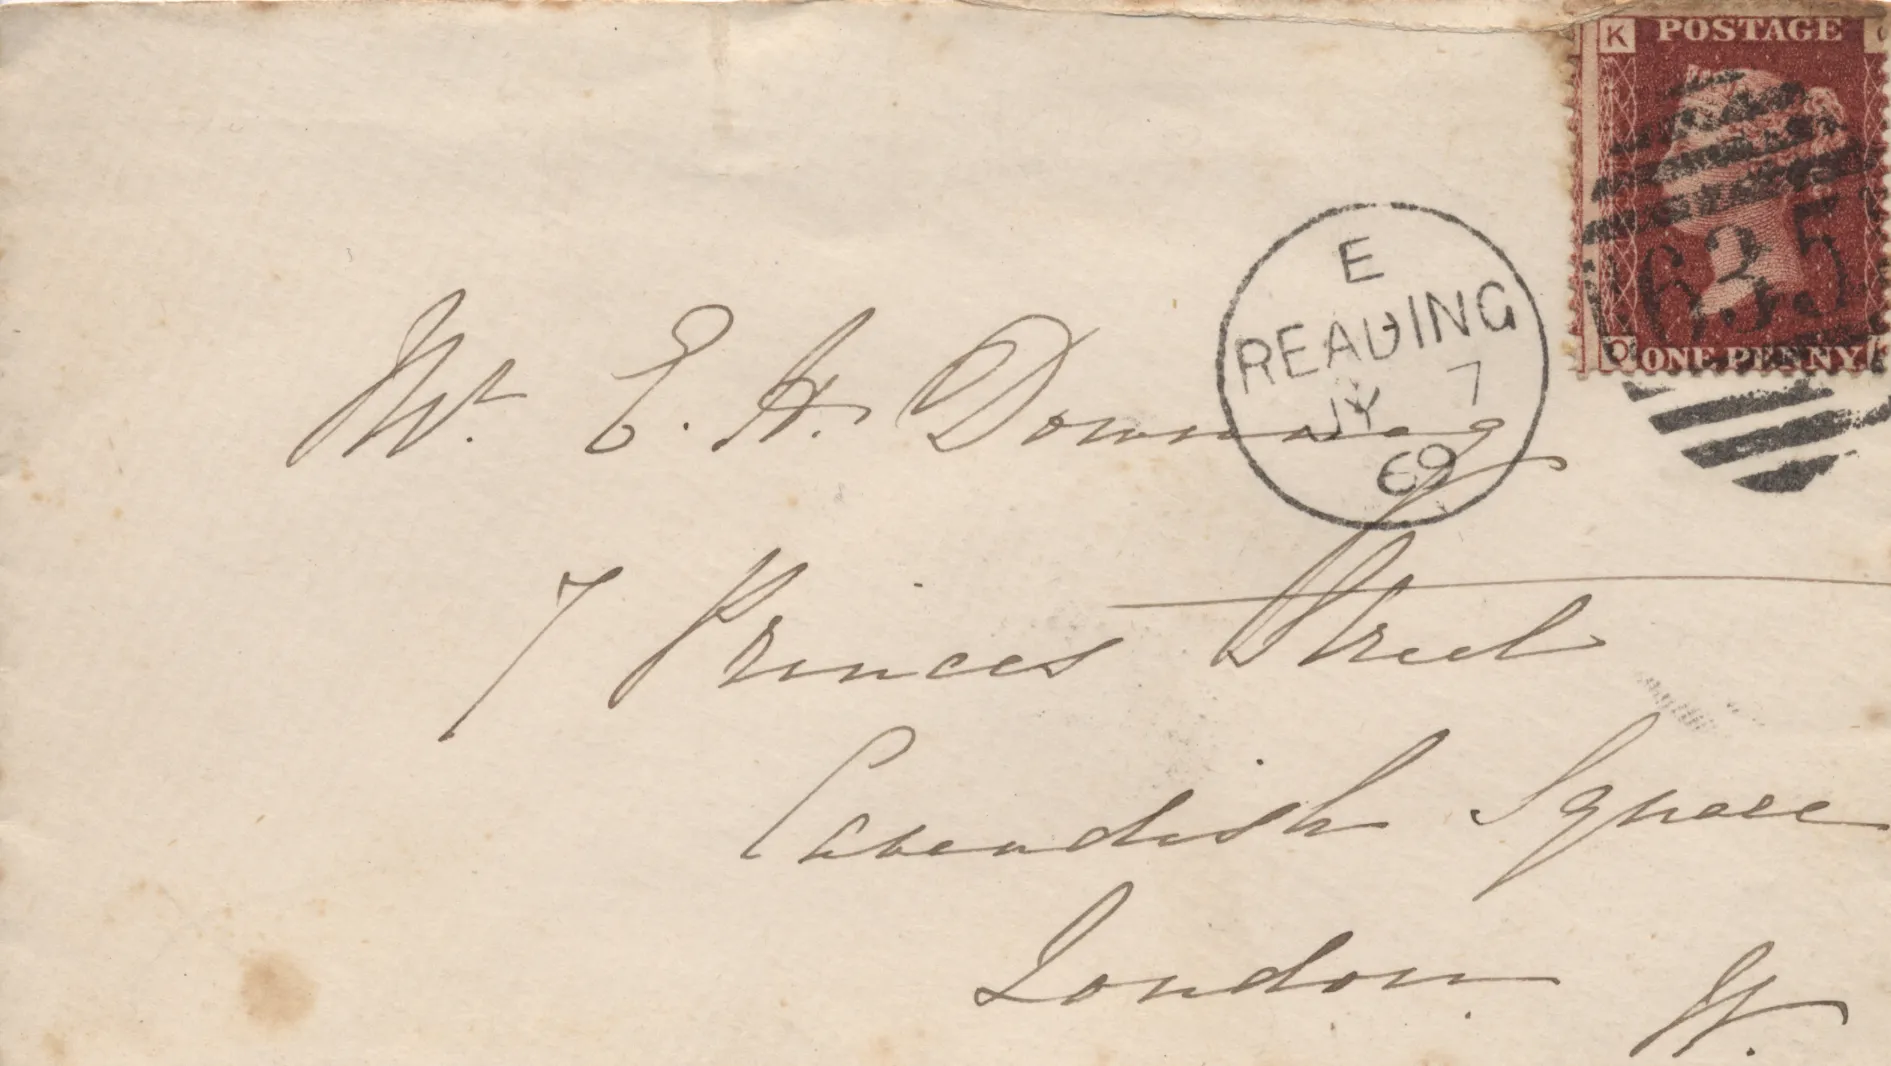 K POSTAGE
635
O ONE PENNY
E
READING
JY 7
69
Mr. E. H. Downing
7 Princes Street
Cavendish Square
London W.